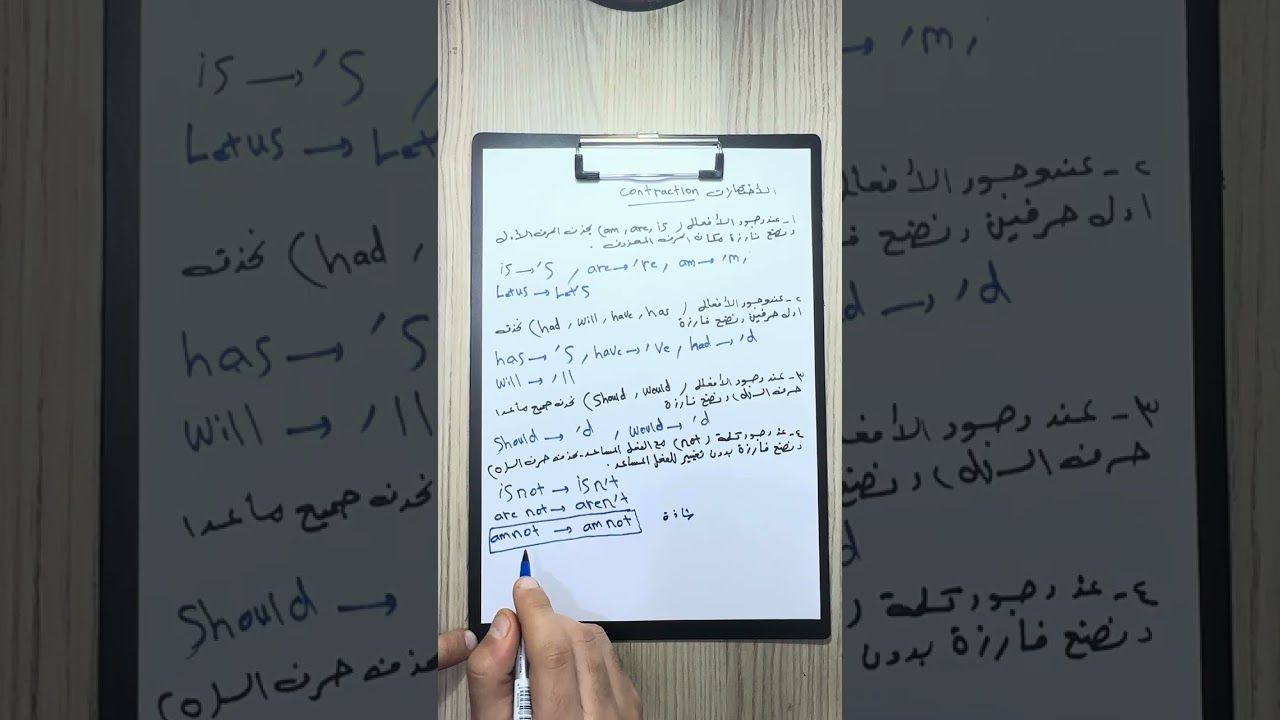 الأختصارات contraction
١- عند وجود الأفعال (am, are, is) نحذف الحرف الأول
ونضع فارزة مكان الحرف المحذوف.
is → 's , are → 're , am → 'm ,
Let us → Let's
٢- عند وجود الأفعال (had, will, have, has) نحذف
اول حرفين ونضع فارزة
has → 's , have → 've , had → 'd
will → 'll
٣- عند وجود الأفعال (Should, would) نحذف جميع ماعدا
حرف الـ(d) ونضع فارزة
Should → 'd , would → 'd
٤- عند وجود كلمة (not) مع الفعل المساعد نحذف حرف الـ(o)
ونضع فارزة بدون تغيير للفعل المساعد.
is not → isn't
are not → aren't
am not → am not شاذة